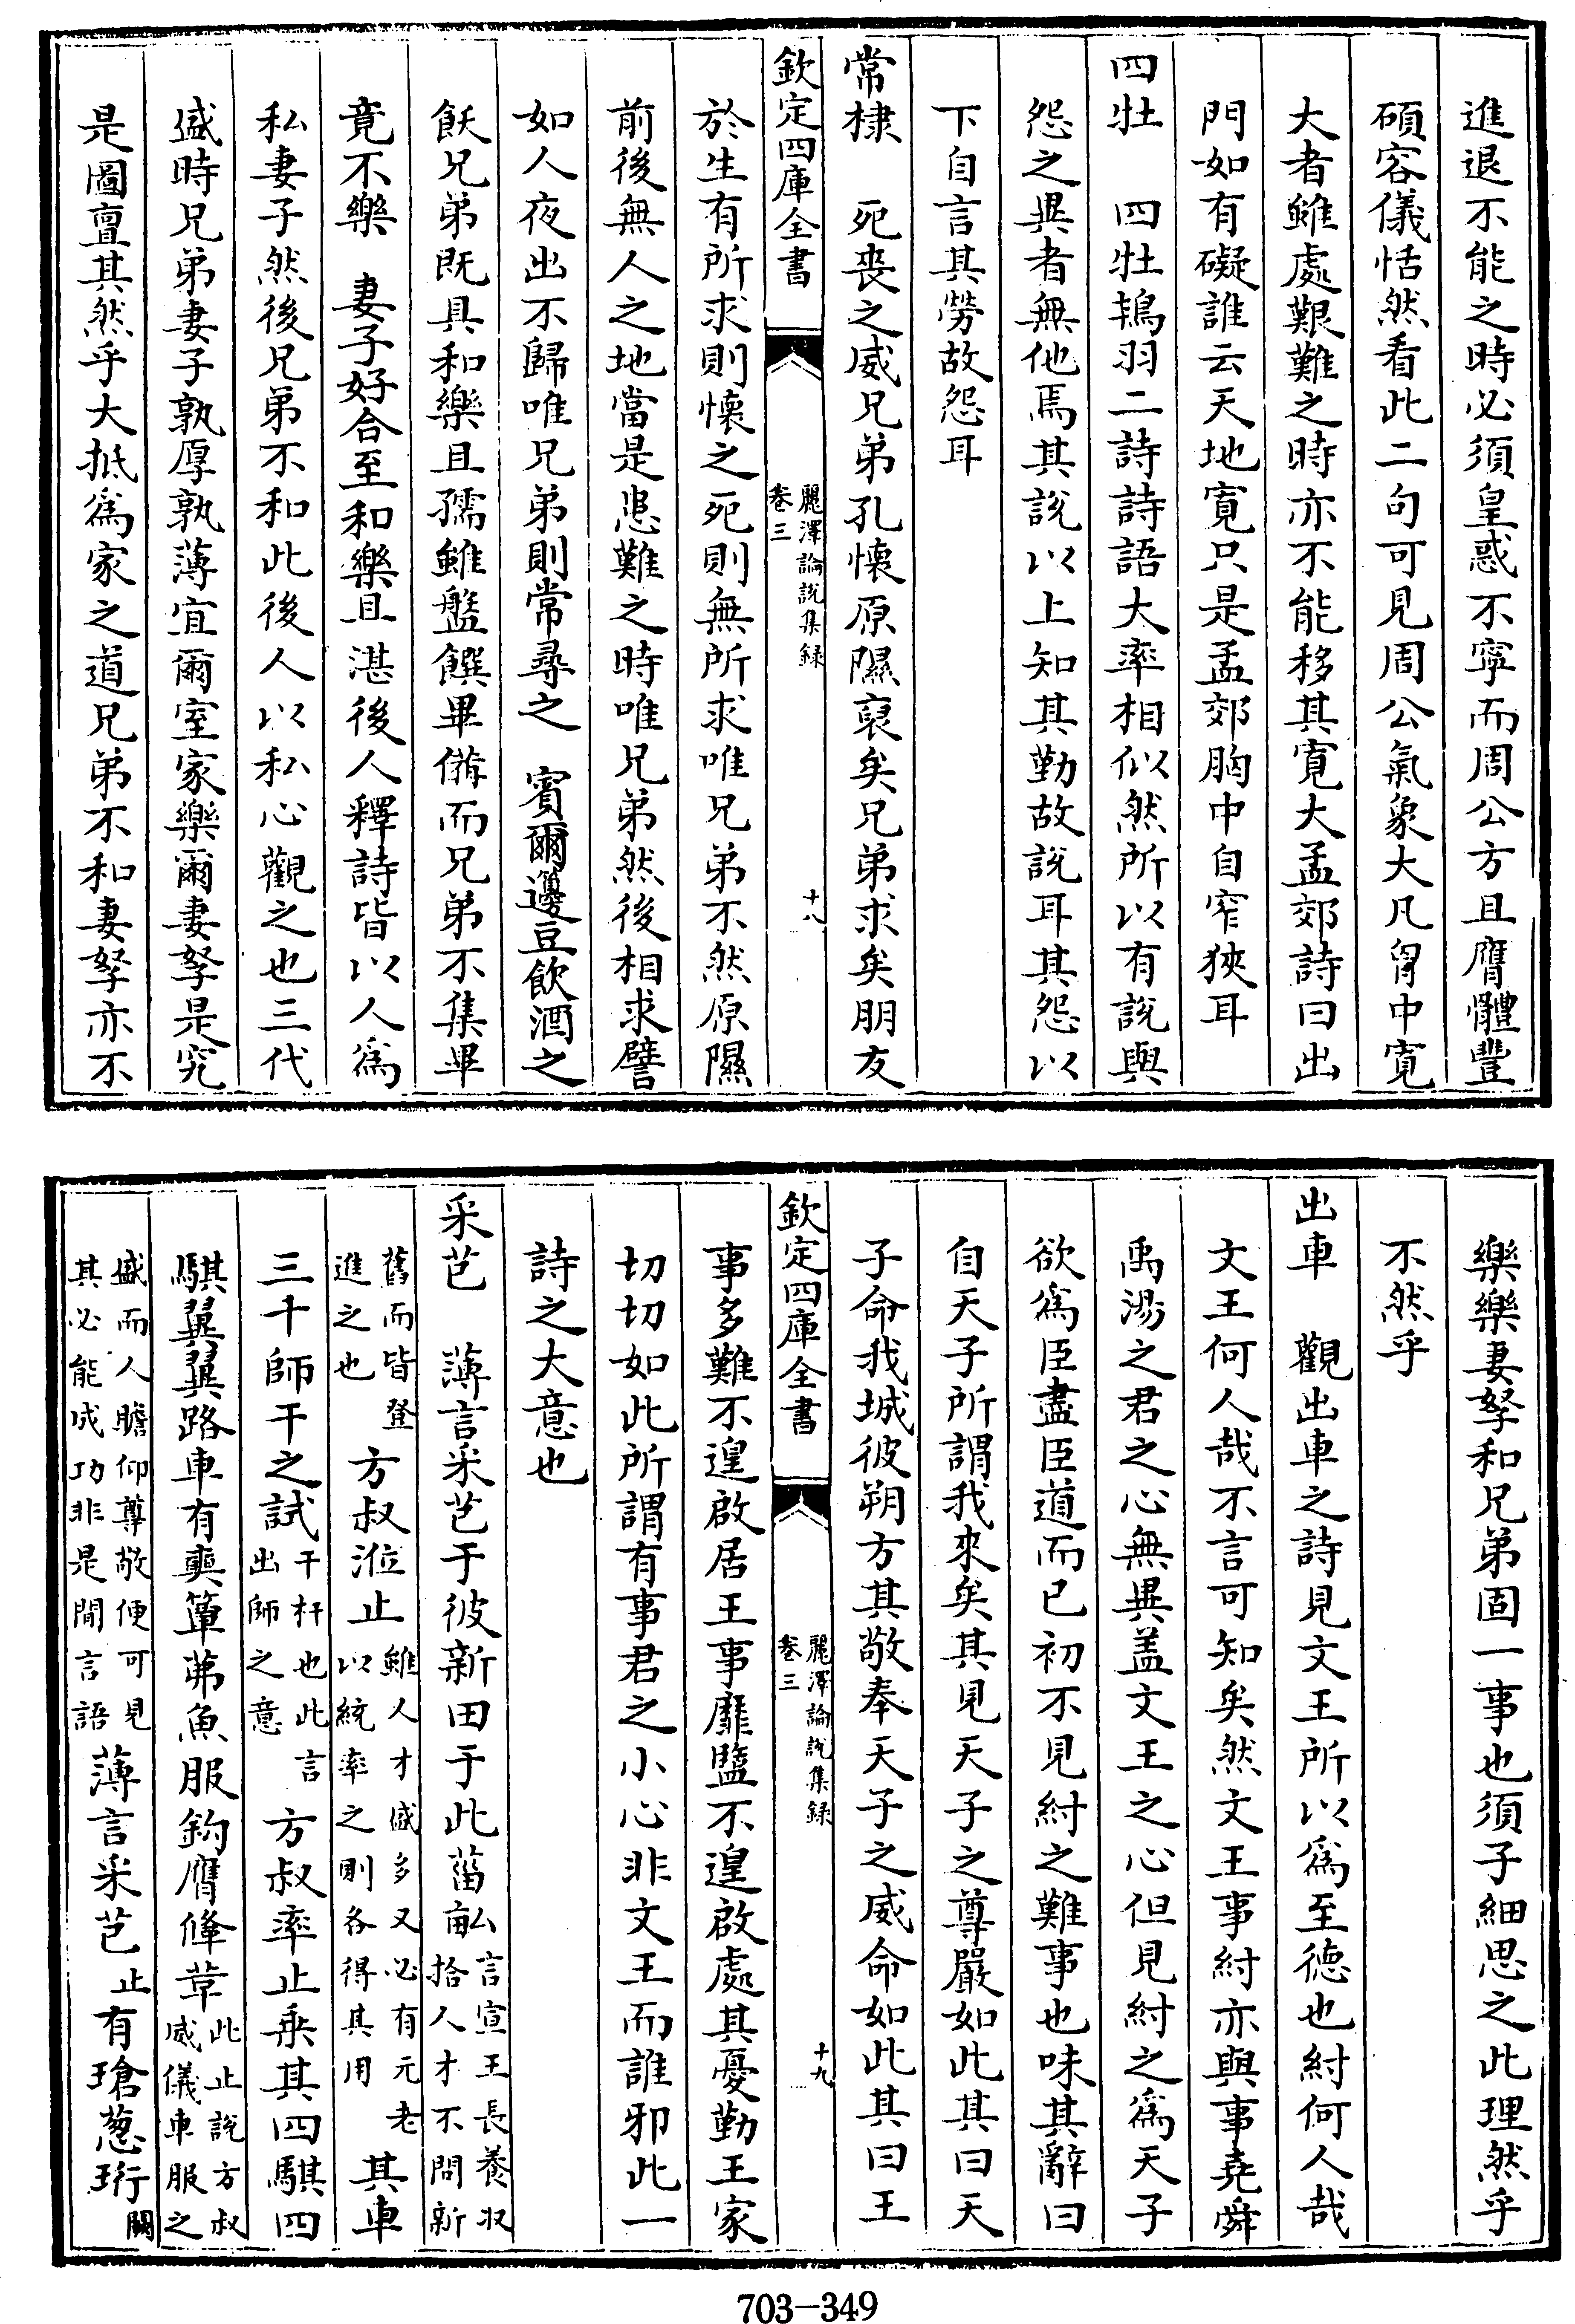 進退不能之時必須皇惑不寧而周公方且膺體豐
碩容儀恬然看此二句可見周公氣象大凡胷中寛
大者雖處艱難之時亦不能移其寛大孟郊詩曰出
門如有礙誰云天地寛只是孟郊胸中自窄狹耳
四牡　四牡鴇羽二詩詩語大率相似然所以有說與
怨之異者無他焉其說以上知其勤故說耳其怨以
下自言其勞故怨耳
常棣　死喪之威兄弟孔懷原隰裒矣兄弟求矣朋友
欽定四庫全書
麗澤論說集録
卷三
十八
於生有所求則懷之死則無所求唯兄弟不然原隰
前後無人之地當是患難之時唯兄弟然後相求譬
如人夜出不歸唯兄弟則常尋之　賓爾籩豆飲酒之
飫兄弟既具和樂且孺雖盤饌畢備而兄弟不集畢
竟不樂　妻子好合至和樂且湛後人釋詩皆以人爲
私妻子然後兄弟不和此後人以私心觀之也三代
盛時兄弟妻子孰厚孰薄宜爾室家樂爾妻孥是究
是圖亶其然乎大抵爲家之道兄弟不和妻孥亦不
樂樂妻孥和兄弟固一事也須子細思之此理然乎
不然乎
出車　觀出車之詩見文王所以爲至德也紂何人哉
文王何人哉不言可知矣然文王事紂亦與事堯舜
禹湯之君之心無異盖文王之心但見紂之爲天子
欲爲臣盡臣道而已初不見紂之難事也味其辭曰
自天子所謂我來矣其見天子之尊嚴如此其曰天
子命我城彼朔方其敬奉天子之威命如此其曰王
欽定四庫全書
麗澤論說集録
卷三
十九
事多難不遑啟居王事靡盬不遑啟處其憂勤王家
切切如此所謂有事君之小心非文王而誰邪此一
詩之大意也
采芑　薄言采芑于彼新田于此菑畝言宣王長養収拾人才不問新
舊而皆登進之也方叔涖止雖人才盛多又必有元老以統率之則各得其用其車
三千師干之試干杆也此言出師之意方叔率止乘其四騏四
騏翼翼路車有奭簟茀魚服鈎膺鞗革此止說方叔威儀車服之
盛而人瞻仰尊敬便可見其必能成功非是閒言語薄言采芑止有瑲葱珩闕
703-349